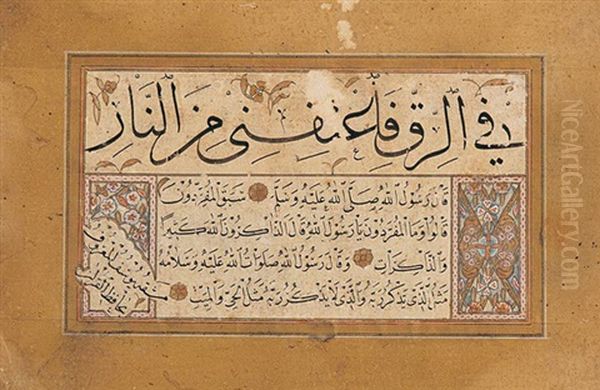 في الرق فاعتقني من النار
قال رسول الله صلى الله عليه وسلم سبق المفردون
قالوا وما المفردون يا رسول الله قال الذاكرون الله كثيرا
والذاكرات وقال رسول الله صلوات الله عليه وسلامه
مثل الذي يذكر ربه والذي لا يذكر ربه مثل الحي والميت
يوسف المعروف
بحافظ القرآن
NiceArtGallery.com